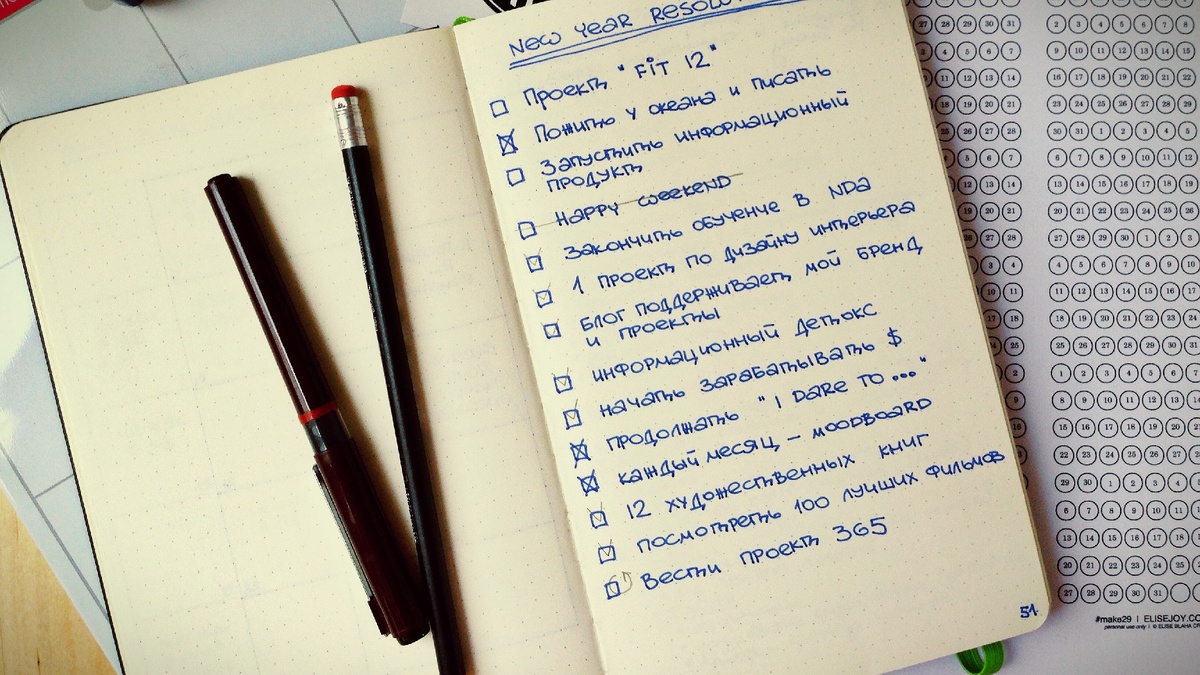 New Year Resolu
Проект "Fit 12"
Пожить у океана и писать
Запустить информационный
продукт
Happy weekend
Закончить обучение в NDA
1 проект по дизайну интерьера
Блог поддерживает мой бренд
и проекты
информационный детокс
начать зарабатывать $
продолжать "I dare to ..."
каждый месяц – moodboard
12 художественных книг
посмотреть 100 лучших фильмов
Вести проект 365
51
#make29 | ELISEJOY.CO
personal use only | © ELISE BLAHA CR